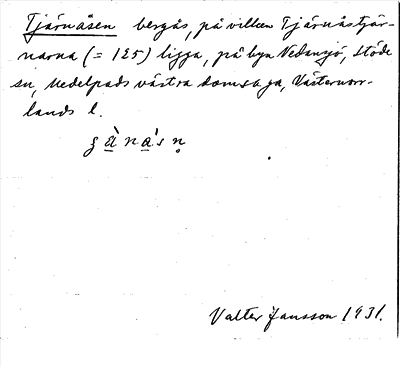 Tjärnåsen bergås, på vilken Tjärnåstjär-
narna (= 125) ligga, på byn Nedansjö, Stöde
sn, Medelpads västra domsaga, Västernorr-
lands l.
Valter Jansson 1931.